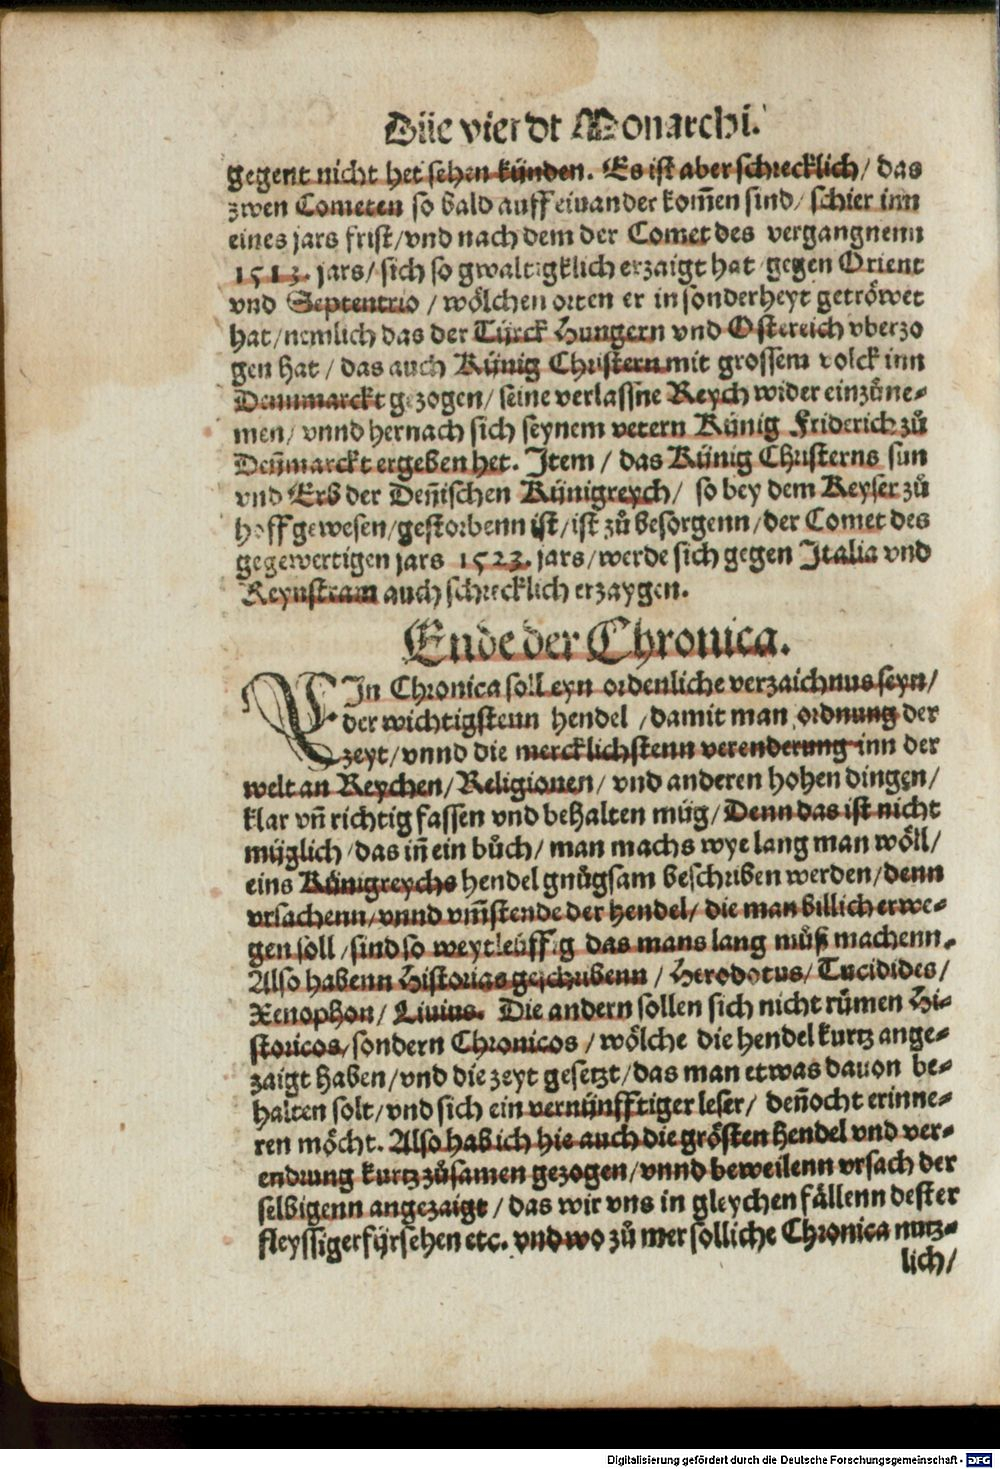 Diie vierdt Monarchi.
gegent nicht het sehen künden. Es ist aber schrecklich/ das
zwen Cometen so bald auff einander kom̄en sind/ schier inn
eines jars frist/vnd nach dem der Comet des vergangnenn
1513. jars/ sich so gwaltigklich erzaigt hat gegen Orient
vnd Septentrio / wölchen orten er in sonderheyt getröwet
hat/nemlich das der Türck Hungern vnd Ostereich vberzo
gen hat / das auch Künig Christern mit grossem volck inn
Dennmarckt gezogen/ seine verlassne Reych wider einzůne-
men/ vnnd hernach sich seynem vetern Künig Friderich zů
Deñmarckt ergeben het. Item / das Künig Christerns sun
vnd Erb der Deñischen Künigreych/ so bey dem Keyser zů
hoff gewesen/gestorbenn ist/ist zů besorgenn/der Comet des
gegewertigen jars 1523. jars/werde sich gegen Italia vnd
Reynstram auch schrecklich erzaygen.
Ende der Chronica.
EIn Chronica soll eyn ordenliche verzaichnus seyn/
der wichtigstenn hendel /damit man ordnung der
zeyt/vnnd die mercklichstenn verenderung inn der
welt an Reychen/Religionen/ vnd anderen hohen dingen/
klar vñ richtig fassen vnd behalten müg/Denn das ist nicht
müglich /das iñ ein bůch/ man machs wye lang man wöll/
eins Künigreychs hendel gnůgsam beschriben werden/denn
vrsachenn/vnnd vm̄stende der hendel/ die man billich erwe-
gen soll /sind so weytleüffig das mans lang můß machenn.
Also habenn Historias geschribenn / Herodotus/ Tucidides/
Xenophon/ Liuius. Die andern sollen sich nicht rümen Hi-
storicos/sondern Chronicos /wölche die hendel kurtz ange-
zaigt haben/vnd die zeyt gesetzt/das man etwas dauon be-
halten solt/vnd sich ein vernünfftiger leser/ deñocht erinne-
ren möcht. Also hab ich hie auch die grösten hendel vnd ver-
endrung kurtz zůsamen gezogen/vnnd beweilenn vrsach der
selbigenn angezaigt /das wir vns in gleychen fällenn dester
fleyssiger fürsehen etc. vnd wo zů mer solliche Chronica nutz-
lich/
Digitalisierung gefördert durch die Deutsche Forschungsgemeinschaft - DFG